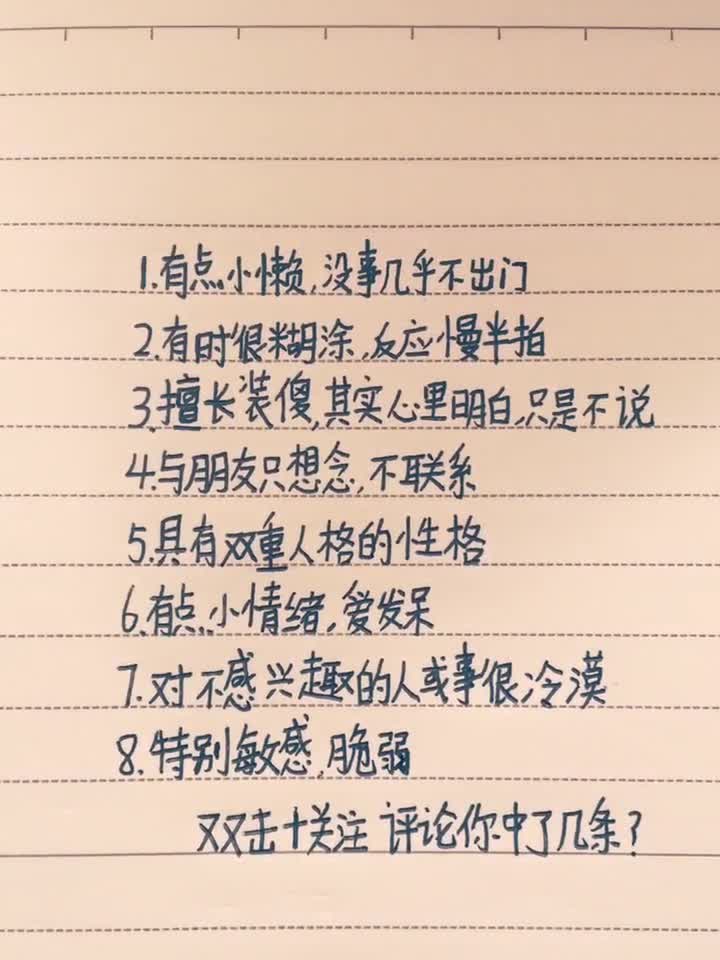 1.有点小懒,没事几乎不出门
2.有时很糊涂,反应慢半拍
3.擅长装傻,其实心里明白,只是不说
4.与朋友只想念,不联系
5.具有双重人格的性格
6.有点小情绪,爱发呆
7.对不感兴趣的人或事很冷漠
8.特别敏感,脆弱
双击+关注 评论你中了几条?